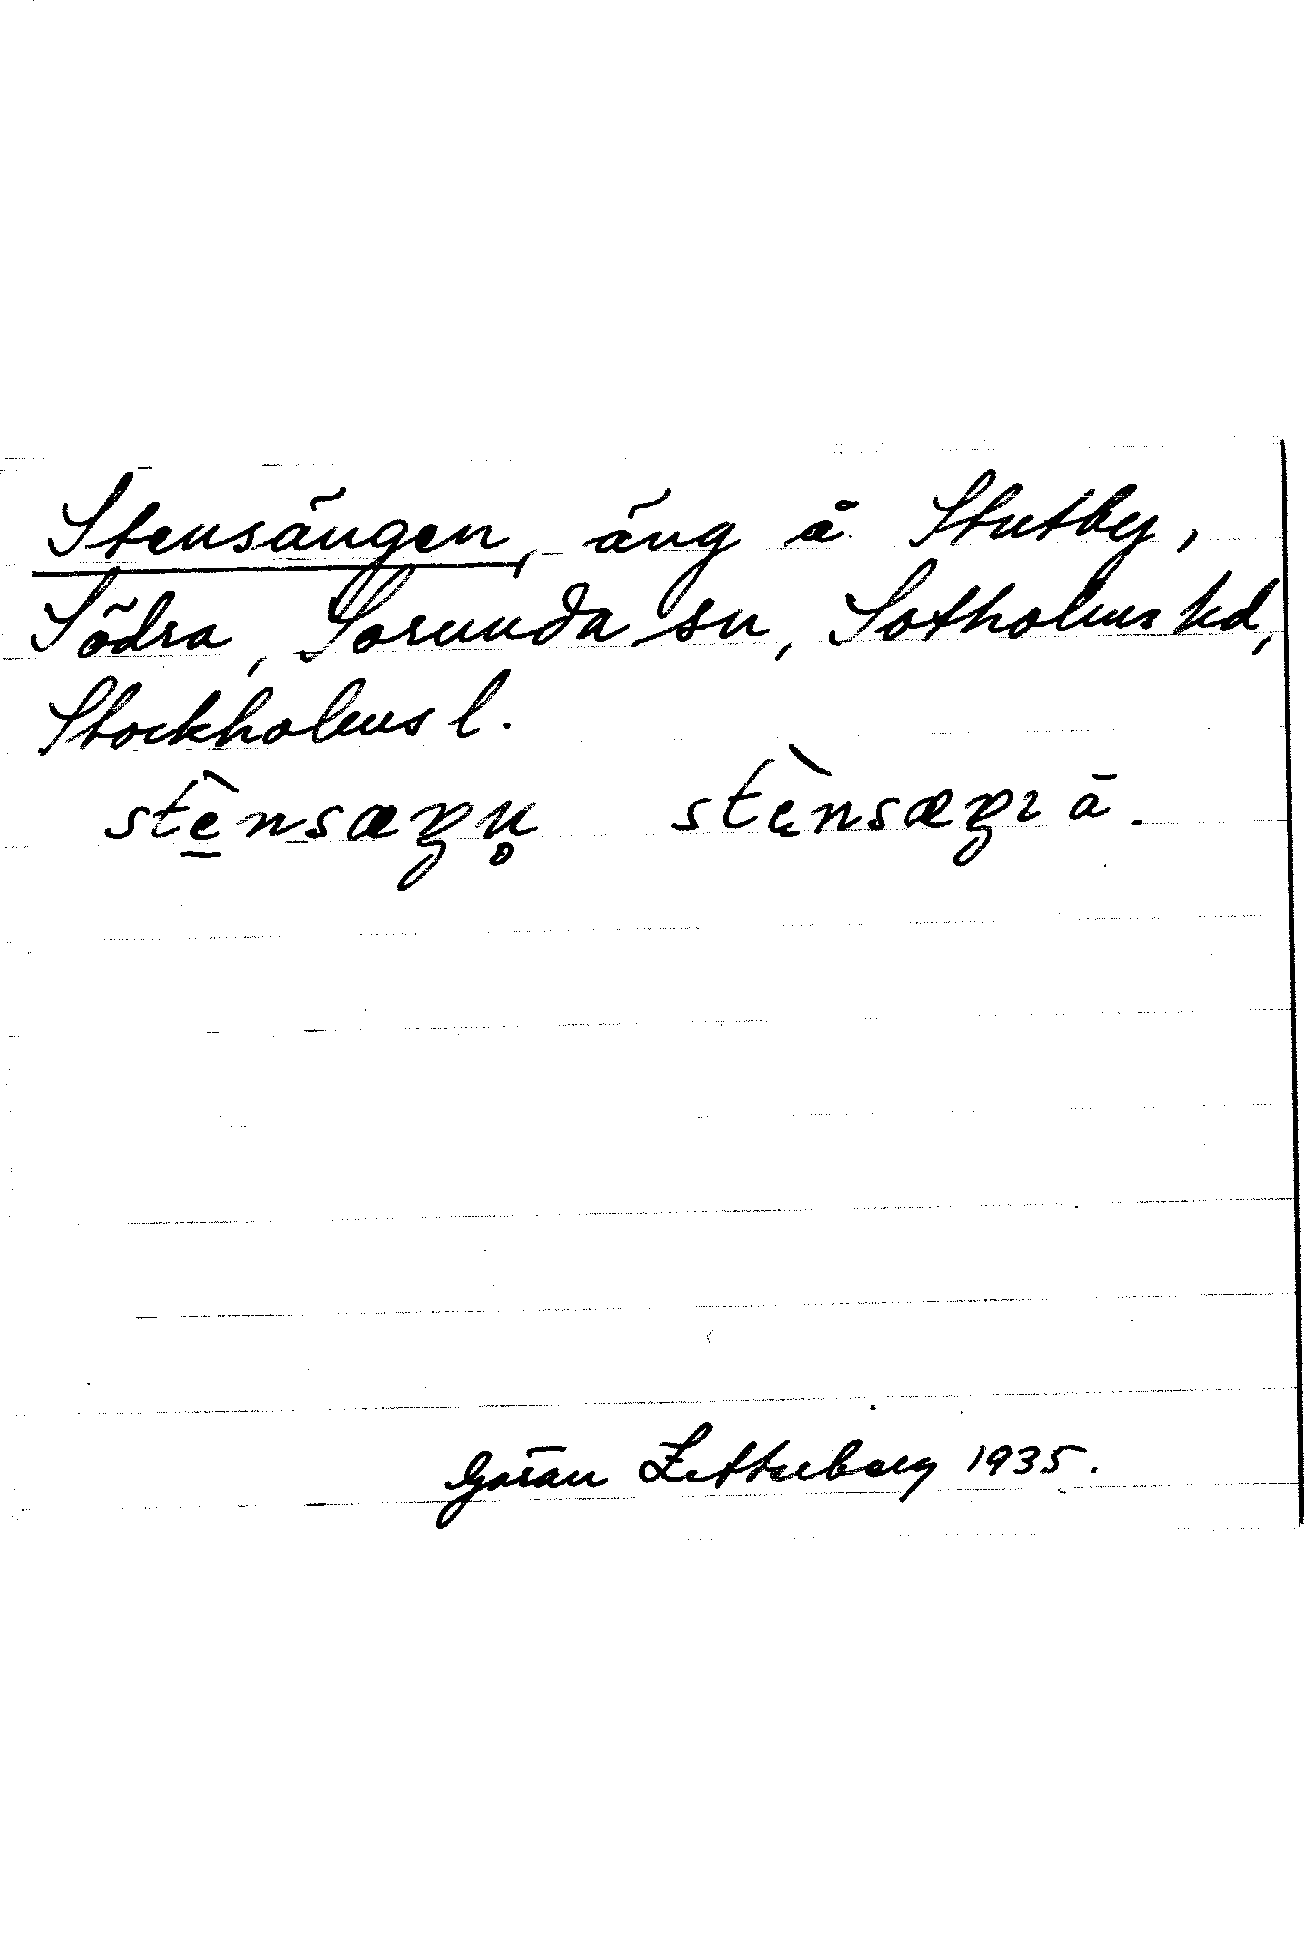 Stensängen, äng å Stutby,
Södra, Sorunda sn, Sotholms hd,
Stockholms l.
stè̱nsæŋn̥ stę̀nsæŋɿ ā.
Göran Zetterberg 1935.